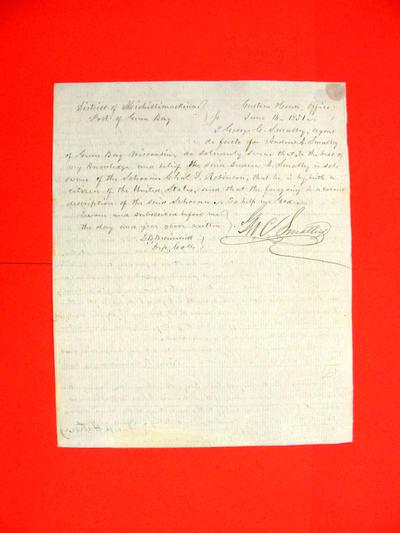 District of Michilimackinac
Port of Green Bay
Custom House Office
June 14 1851
I George C. Smalley, agent
de facto for Andrew A. Smalley
of Green Bay Wisconsin, do solemnly swear that, to the best of
my knowledge and belief the said Andrew A. Smalley is sole
owner of the Schooner Chas. I. Robinson, that he is by birth a
citizen of the United States, and that the foregoing is a correct
description of the said Schooner. So help me God.
Sworn and subscribed before me
the day and year above written
Geo. C. Smalley
Dep. Coll.